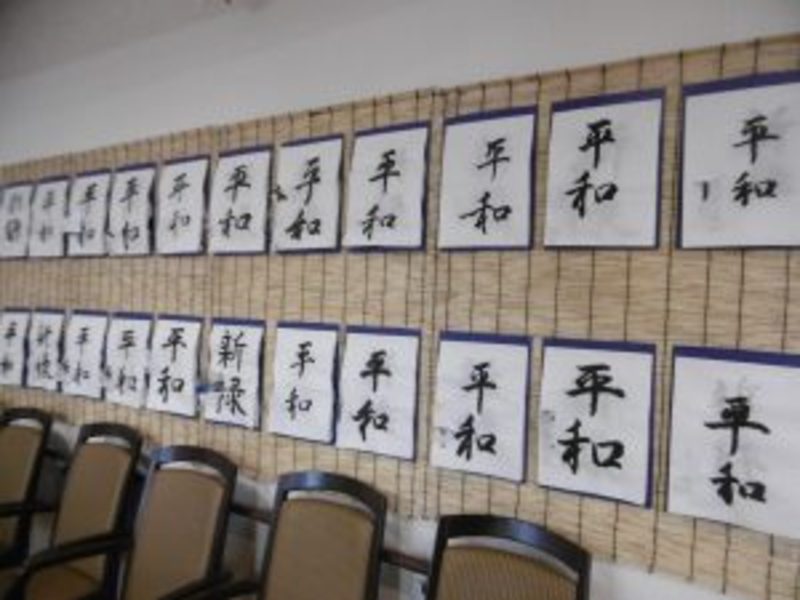 平和
平和
平和
平和
平和
平和
平和
平和
平和
平和
平和
平和
平和
平和
新緑
平和
平和
平和
平和
平和